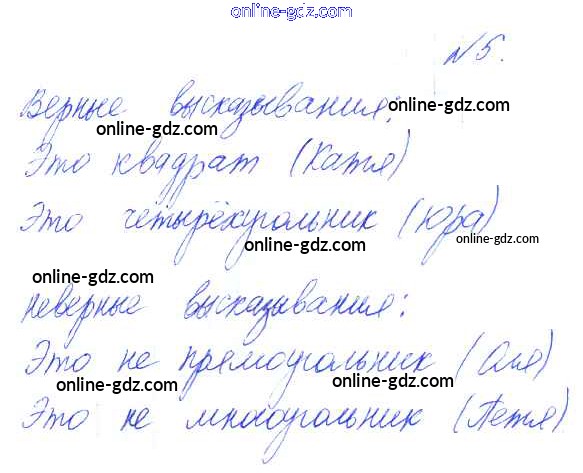 online-gdz.com
N 5.
Верные высказывания:
online-gdz.com
online-gdz.com
Это квадрат (Катя)
online-gdz.com
Это четырёхугольник (Юра)
online-gdz.com
online-gdz.com
online-gdz.com
неверные высказывания:
online-gdz.com
Это не прямоугольник (Оля)
online-gdz.com
online-gdz.com
Это не многоугольник (Петя)